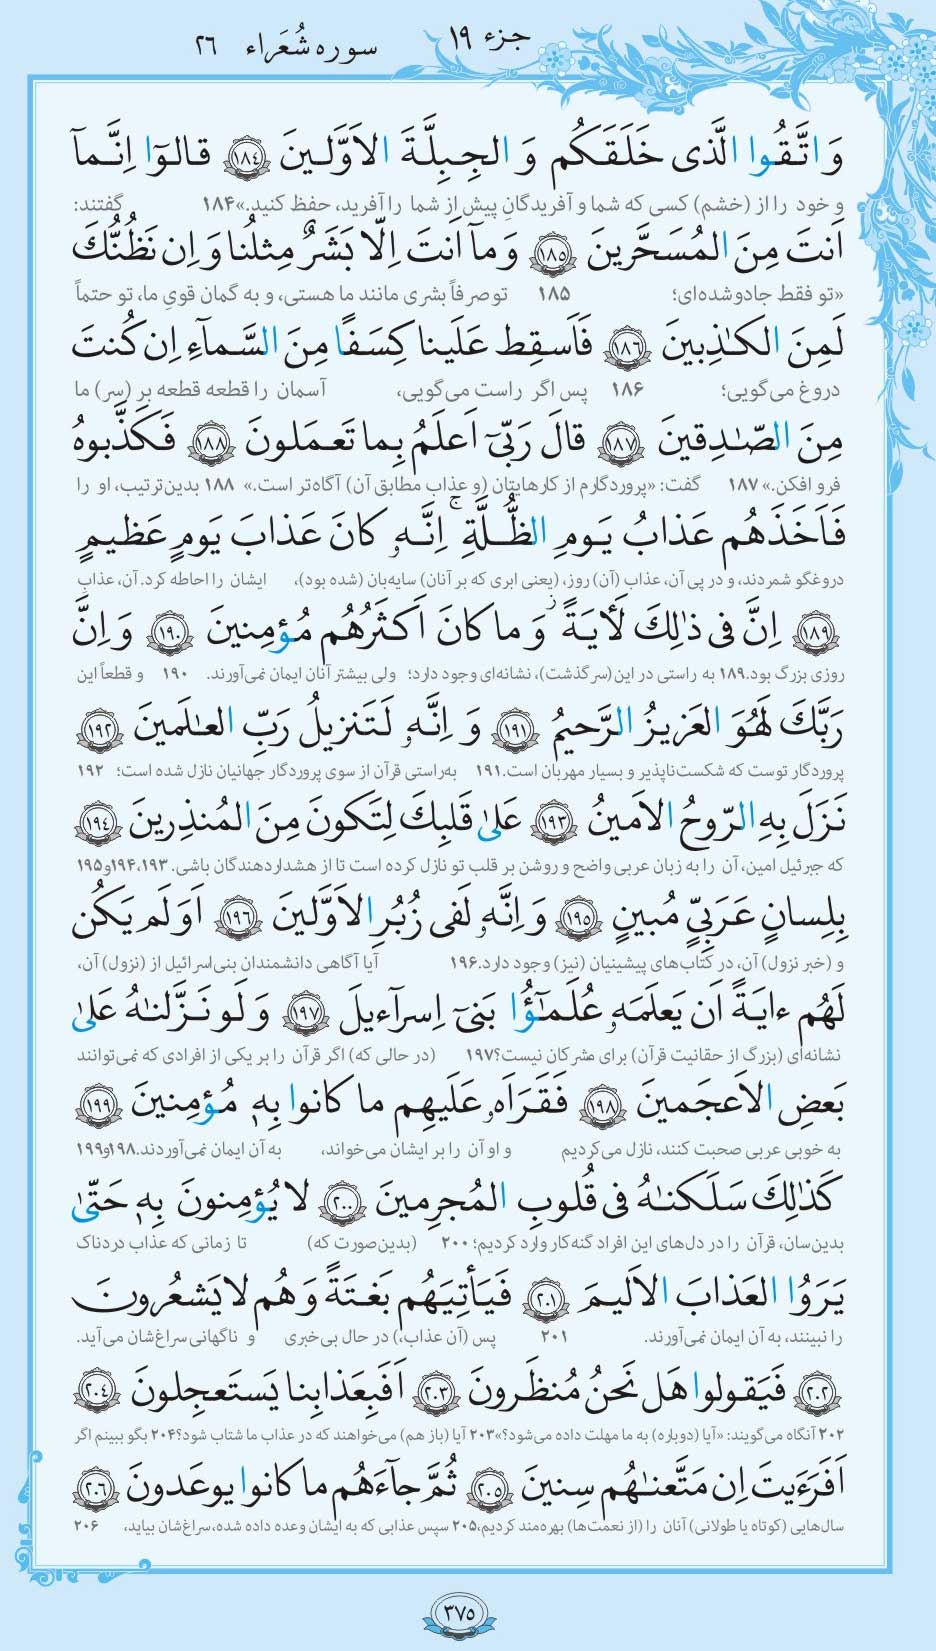 جزء ۱۹ سوره شُعَراء ۲۶
وَ اتَّقُوا الَّذی خَلَقَكُم وَ الجِبِلَّةَ الاَوَّلینَ ﴿۱۸٤﴾ قالوٓا اِنَّمآ
و خود را از (خشم) کسی که شما و آفریدگانِ پیش از شما را آفرید، حفظ کنید.» ۱۸۴ گفتند:
اَنتَ مِنَ المُسَحَّرینَ ﴿۱۸۵﴾ وَ مآ اَنتَ اِلّا بَشَرٌ مِثلُنا وَ اِن نَظُنُّكَ
«تو فقط جادوشده‌ای؛ ۱۸۵ تو صرفاً بشری مانند ما هستی، و به گمان قویِ ما، تو حتماً
لَمِنَ الكٰذِبینَ ﴿۱۸۶﴾ فَاَسقِط عَلَینا كِسَفًا مِنَ السَّمآءِ اِن كُنتَ
دروغ می‌گویی؛ ۱۸۶ پس اگر راست می‌گویی، آسمان را قطعه قطعه بر (سر) ما
مِنَ الصّٰدِقینَ ﴿۱۸۷﴾ قالَ رَبّیٓ اَعلَمُ بِما تَعمَلونَ ﴿۱۸۸﴾ فَكَذَّبوهُ
فرو افکن.» ۱۸۷ گفت: «پروردگارم از کارهایتان (و عذاب مطابق آن) آگاه‌تر است.» ۱۸۸ بدین‌ترتیب، او را
فَاَخَذَهُم عَذابُ یَومِ الظُّلَّةِ ۚ اِنَّهٗ كانَ عَذابَ یَومٍ عَظیمٍ
دروغگو شمردند، و در پی آن، عذاب (آن) روز، (یعنی ابری که بر آنان) سایه‌بان (شده بود)، ایشان را احاطه کرد. آن، عذابِ
﴿۱۸۹﴾ اِنَّ فی ذٰلِكَ لَأیَةً ز وَ ما كانَ اَكثَرُهُم مُؤمِنینَ ﴿۱۹۰﴾ وَ اِنَّ
روزی بزرگ بود. ۱۸۹ به راستی در این (سرگذشت)، نشانه‌ای وجود دارد؛ ولی بیشتر آنان ایمان نمی‌آورند. ۱۹۰ و قطعاً این
رَبَّكَ لَهُوَ العَزیزُ الرَّحیمُ ﴿۱۹۱﴾ وَ اِنَّهٗ لَتَنزیلُ رَبِّ العٰلَمینَ ﴿۱۹۲﴾
پروردگار توست که شکست‌ناپذیر و بسیار مهربان است. ۱۹۱ به‌راستی قرآن از سوی پروردگار جهانیان نازل شده است؛ ۱۹۲
نَزَلَ بِهِ الرّوحُ الاَمینُ ﴿۱۹۳﴾ عَلىٰ قَلبِكَ لِتَكونَ مِنَ المُنذِرینَ ﴿۱۹٤﴾
که جبرئیل امین، آن را به زبان عربی واضح و روشن بر قلب تو نازل کرده است تا از هشداردهندگان باشی. ۱۹۳، ۱۹۴و۱۹۵
بِلِسانٍ عَرَبِیٍّ مُبینٍ ﴿۱۹۵﴾ وَ اِنَّهٗ لَفی زُبُرِ الاَوَّلینَ ﴿۱۹۶﴾ اَوَلَم یَكُن
و (خبر نزول) آن، در کتاب‌های پیشینیان (نیز) وجود دارد. ۱۹۶ آیا آگاهی دانشمندان بنی‌اسرائیل از (نزول) آن،
لَهُم ءایَةً اَن یَعلَمَهٗ عُلَمٰٓؤُا بَنیٓ اِسرآءیلَ ﴿۱۹۷﴾ وَ لَو نَزَّلنٰهُ عَلىٰ
نشانه‌ای (بزرگ از حقانیت قرآن) برای مشرکان نیست؟ ۱۹۷ (در حالی که) اگر قرآن را بر یکی از افرادی که نمی‌توانند
بَعضِ الاَعجَمینَ ﴿۱۹۸﴾ فَقَرَاَهٗ عَلَیهِم ما كانوا بِهٖ مُؤمِنینَ ﴿۱۹۹﴾
به خوبی عربی صحبت کنند، نازل می‌کردیم و او آن را بر ایشان می‌خواند، به آن ایمان نمی‌آوردند. ۱۹۸و۱۹۹
كَذٰلِكَ سَلَكنٰهُ فی قُلوبِ المُجرِمینَ ﴿۲۰۰﴾ لا یُؤمِنونَ بِهٖ حَتّىٰ
بدین‌سان، قرآن را در دل‌های این افراد گنه‌کار وارد کردیم؛ ۲۰۰ (بدین‌صورت که) تا زمانی که عذاب دردناک
یَرَوُا العَذابَ الاَلیمَ ﴿۲۰۱﴾ فَیَأتِیَهُم بَغتَةً وَ هُم لا یَشعُرونَ
را نبینند، به آن ایمان نمی‌آورند. ۲۰۱ پس (آن عذاب،) در حال بی‌خبری و ناگهانی سراغ‌شان می‌آید.
﴿۲۰۲﴾ فَیَقولوا هَل نَحنُ مُنظَرونَ ﴿۲۰۳﴾ اَفَبِعَذابِنا یَستَعجِلونَ ﴿۲۰٤﴾
۲۰۲ آنگاه می‌گویند: «آیا (دوباره) به ما مهلت داده می‌شود؟» ۲۰۳ آیا (باز هم) می‌خواهند که در عذاب ما شتاب شود؟ ۲۰۴ بگو ببینم اگر
اَفَرَءَیتَ اِن مَتَّعنٰهُم سِنینَ ﴿۲۰۵﴾ ثُمَّ جآءَهُم ما كانوا یوعَدونَ ﴿۲۰۶﴾
سال‌هایی (کوتاه یا طولانی) آنان را (از نعمت‌ها) بهره‌مند کردیم، ۲۰۵ سپس عذابی که به ایشان وعده داده شده، سراغ‌شان بیاید، ۲۰۶
۳۷۵